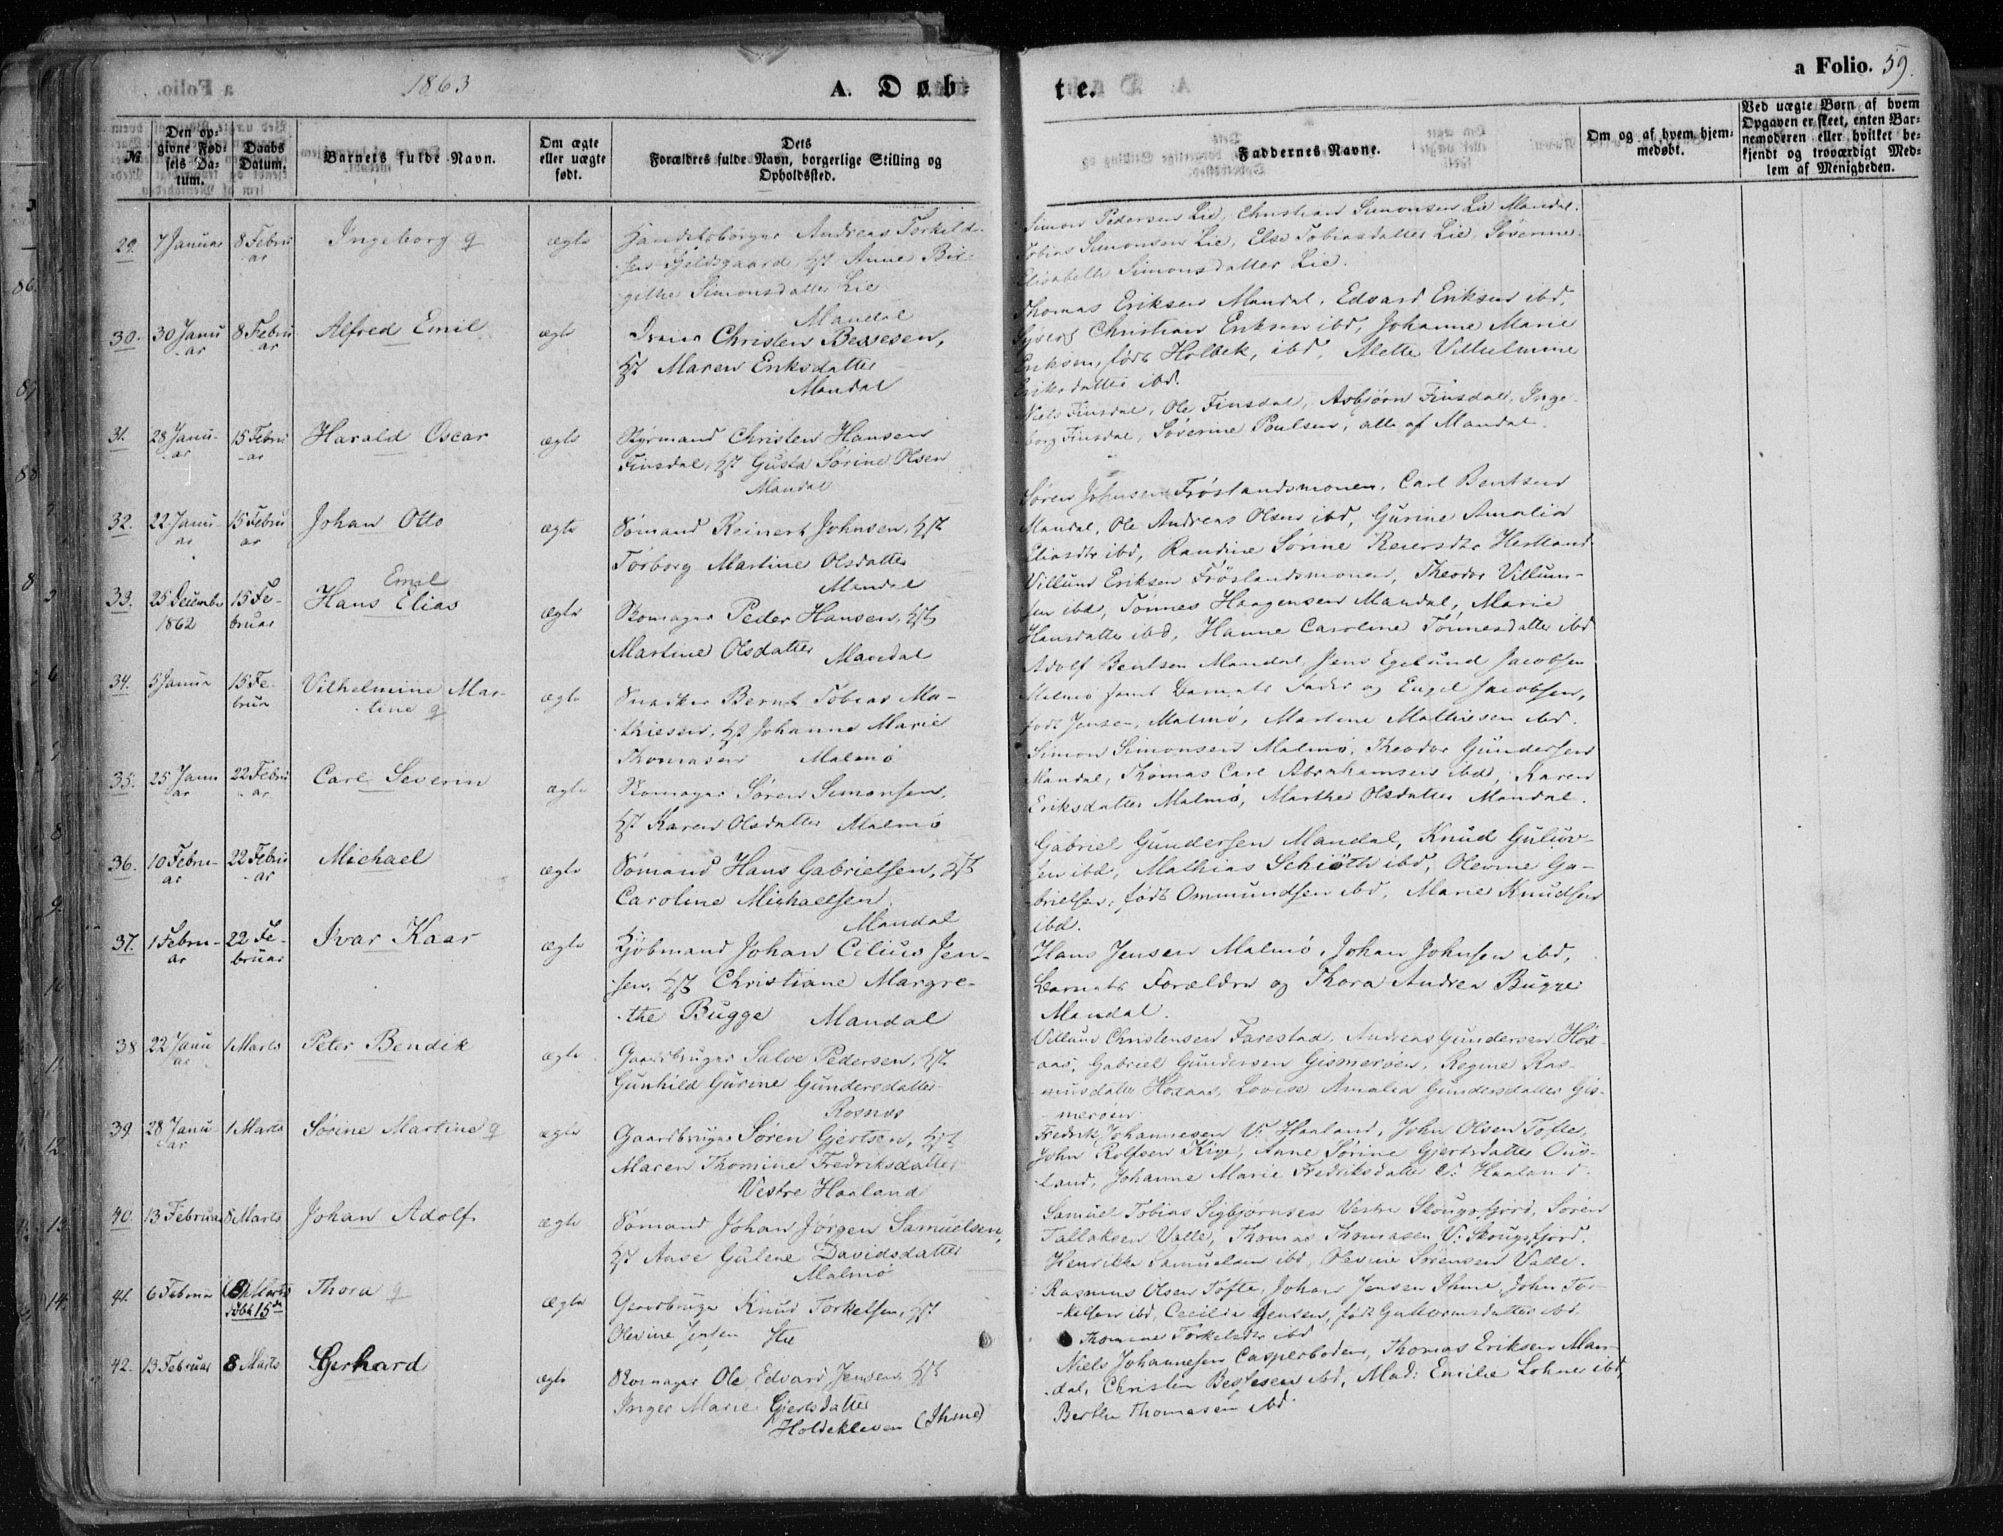 1863
A. Døbte.
a Folio. 59.
№
Den opgivne Fødsels Datum.
Daabs Datum.
Barnets fulde Navn.
Om ægte eller uægte født.
Dets Forældres fulde Navn, borgerlige Stilling og Opholdssted.
Faddernes Navne.
Om og af hvem hjemmedøbt.
Ved uægte Børn af hvem Opgaven er skeet, enten Barnemoderen eller hvilket bekjendt og troværdigt Medlem af Menigheden.
29. 7 Januar 8 Februar Ingeborg ægte
Andreas Torkild-
sen Fjeldsgaard, Anne Bir-
githe Simonsdatter Lie
Mandal
Simon Pedersen Lie, Christian Simonsen Lie Mandal.
Tobias Simonsen Lie, Else Tobiasdatter Lie, Søverine
Elisabeth Simonsdatter Lie.
30. 30 Januar 8 Februar Alfred Emil ægte
Christen Bessesen,
Maren Eriksdatter
Mandal
Thomas Eriksen Mandal, Edvard Eriksen ibd,
Christian Eriksen ibd, Johanne Marie
Eriksen, født Holbek, ibd, Mette Vilhelmine
Eriksdatter ibd.
31. 28 Januar 15 Februar Harald Oscar ægte
Styrmand Christen Hansen
Finsdal, Gusta Sørine Olsen
Mandal
Niels Finsdal, Ole Finsdal, Asbjørn Finsdal, Inge-
borg Finsdal, Søverine Poulsen, alle af Mandal.
32. 22 Januar 15 Februar Johan Otto ægte
Sømand Reinert Johnsen,
Torborg Martine Olsdatter
Mandal
Søren Johnsen Frøslandsmonen, Carl Bentsen
Mandal, Ole Andreas Olsen ibd, Gurine Amalia
Eliasdtr ibd, Randine Sørine Reiersdtr
33. 25 December 1862 15 Februar Hans Emil Elias ægte
Skomager Peder Hansen,
Martine Olsdatter Mandal
Villund Eriksen Frøslandsmonen, Theodor Villum-
sen ibd, Tønnes Haagensen Mandal, Marie
Hansdatter ibd, Hanne Caroline Tønnesdatter ibd
34. 5 Januar 15 Februar Vilhelmine Mar-
tine ægte
Snedker Bernt Tobias Ma-
thiesen, Johanne Marie
Thomasen Malmø
Adolf Bentsen Mandal, Jens Egelund Jacobsen
Malmø samt Barnets Fader og Engel Jacobsen,
født Jensen, Malmø, Martine Mathisen ibd.
35. 25 Januar 22 Februar Carl Severin ægte
Skomager Søren Simonsen,
Karen Olsdatter Malmø
Simon Simonsen Malmø, Theodor Gundersen
Mandal, Thomas Carl Abrahamsen ibd, Karen
Eriksdatter Malmø, Marthe Olsdatter Mandal.
36. 10 Februar 22 Februar Michael ægte
Sømand Hans Gabrielsen,
Caroline Michaelsen.
Mandal
Gabriel Gundersen Mandal, Knud Guluv-
sen ibd, Mathias Schiøth ibd, Olevine Ga-
brielsen, født Ommundsen ibd, Marie Knudsen
ibd.
37. 1 Februar 22 Februar Ivar Kaar ægte
Kjøbmand Johan Cilius Jen-
sen, Christiane Margre-
the Bugge Mandal
Hans Jensen Malmø, Johan Johnsen ibd,
Barnets Forældre og Thora Andrea Bugge
Mandal.
38 22 Januar 1 Marts Peter Bendik ægte
Gaardbruger Salve Pedersen,
Gunhild Gurine Gundersdatter
Rosnes
Villum Christensen Farestad, Andreas Gundersen Hog-
aas, Gabriel Gundersen Gismerøen, Regine Ras-
musdatter, Lovise Amalia Gundersdatter Gis-
merøen
39. 28 Januar 1 Marts Sørine Martine ægte
Gaardbruger Søren Gjertsen,
Maren Thomine Fredriksdatter
Vestre Haaland
Fredrik Johannesen V. Haaland, John Olsen Tofte,
John Rolfsen Kige, Anne Sørine Gjertsdatter Ous-
land, Johanne Marie Fredriksdatter V: Haaland.
40. 13 Februar 8 Marts Johan Adolf ægte
Sømand Johan Jørgen Samuelsen,
Aase Gulene Davidsdatter
Malmø
Samuel Tobias Sigbjørnsen Vestre Skougsfjord, Søren
Tallaksen Valle, Thomas Thomasen V: Skougsfjord.
Henrikke Samuelsen ibd, Olevine Sørensen Valle.
41. 6 Februar 8 Marts Døbt 15de Thora ægte
Gaardbruger Knud Torkelsen,
Olevine Jensen
Rasmus Olsen Tofte, Johan Jensen Ihme, John Tor-
kelsen ibd, Cecilia Jensen, født Guttormsdatter ibd.
Thomine Torkelsdtr ibd
42. 13 Februar 8 Marts Gerhard ægte
Skomager Ole Edvard Jensen,
Inger Marie Gjertsdatter
Holdekleven (Ihme)
Niels Johannesen Casperboden, Thomas Eriksen Man-
dal, Christen Bessesen ibd, Mad: Emilie Lohne ibd,
Berthe Thomasen ibd.